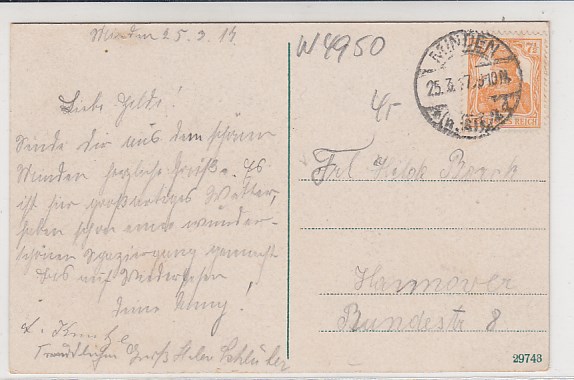 Minden 25.3.17.
Liebe Hilde!
Sende dir aus dem schönen
Minden herzliche Grüße. Es
ist hier großartiges Wetter,
haben schon einen wunder-
schönen Spaziergang gemacht
Bis auf Wiedersehen
deine
Freundlichen Gruß
W 4950
4,-
MINDEN
25.3.17.9-10N.
7½
REICH
Frl Hilde
Hannover
Bundestr 8
29743